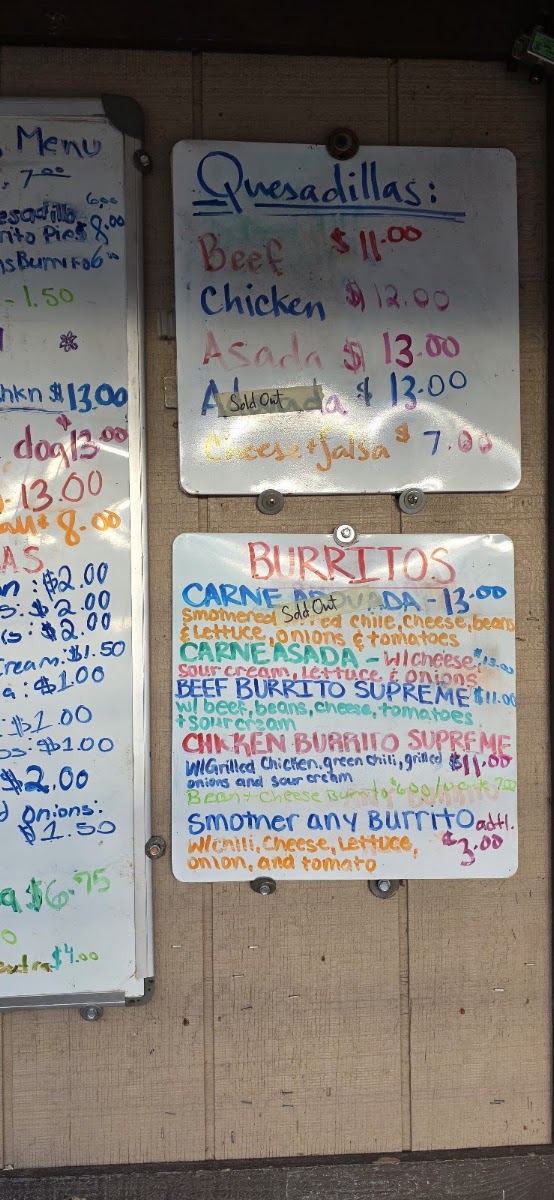 Menu
7.00
6.00
rito Pies 8.00
- 1.50
hkn $13.00
dog 13.00
13.00
8.00
AS
n: $2.00
s: $2.00
s: $2.00
ream: $1.50
a: $1.00
: $1.00
os: $1.00
$2.00
d Onions:
$1.50
a $6.75
0
$4.00
Quesadillas:
Beef $11.00
Chicken $12.00
Asada $13.00
A Sold Out da $13.00
Cheese + Salsa $7.00
BURRITOS
CARNE ADOVADA - 13.00
Sold Out
Smothered red chile, cheese, beans
& Lettuce, onions & tomatoes
CARNE ASADA - W/Cheese, $13.00
Sour cream, Lettuce & onions
BEEF BURRITO SUPREME $11.00
w/ beef, beans, cheese, tomatoes
+ sour cream
CHICKEN BURRITO SUPREME
W/Grilled Chicken, green chili, grilled $11.00
onions and sour cream
Bean + Cheese Burrito $6.00/ 7.00
Smother any BURRITO adtl.
W/chili, Cheese, Lettuce, $3.00
onion, and tomato